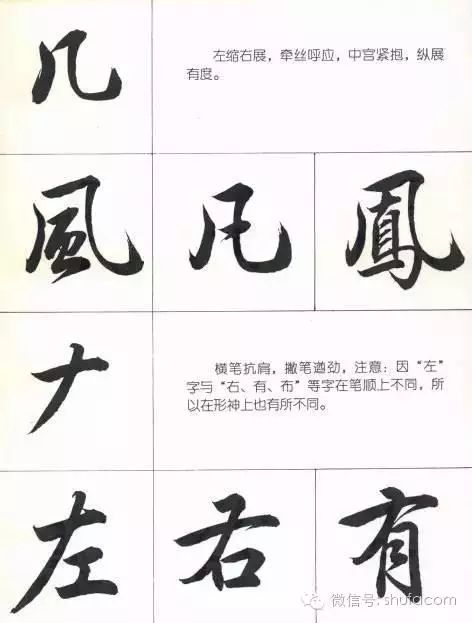 几
左缩右展，牵丝呼应，中宫紧抱，纵展
有度。
風 凡 鳳
𠂇
横笔抗肩，撇笔遒劲，注意：因“左”
字与“右、有、布”等字在笔顺上不同，所
以在形神上也有所不同。
左 右 有
微信号: shufacom